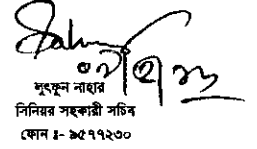 লুৎফুন নাহার
সিনিয়র সহকারী সচিব
ফোন ঃ- ৯৫৭৭২৩০